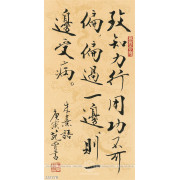 致知力行用功不可
偏偏過一邊則一
邊受病
朱熹語